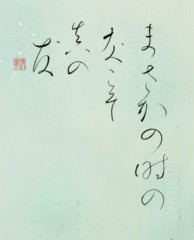 まさかの時の
友こそ
真の
友